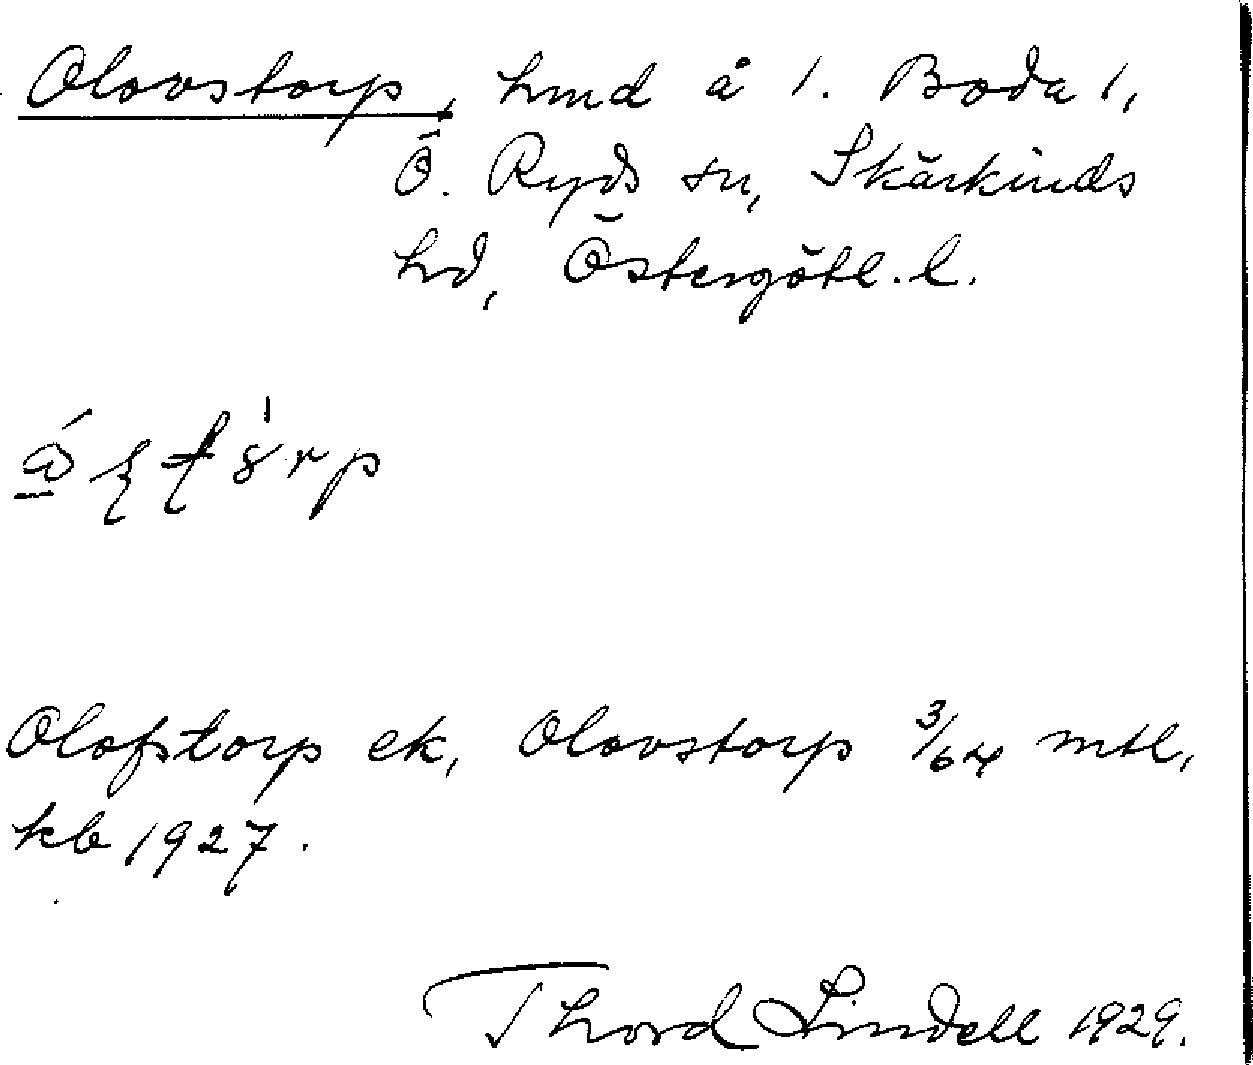 Olovstorp, hmd å 1. Boda 1,
Ö. Ryds sn, Skärkinds
hd, Östergötl. l.
Olofstorp ek, Olovstorp 3/64 mtl,
kb 1927.
Thord Lindell 1929.